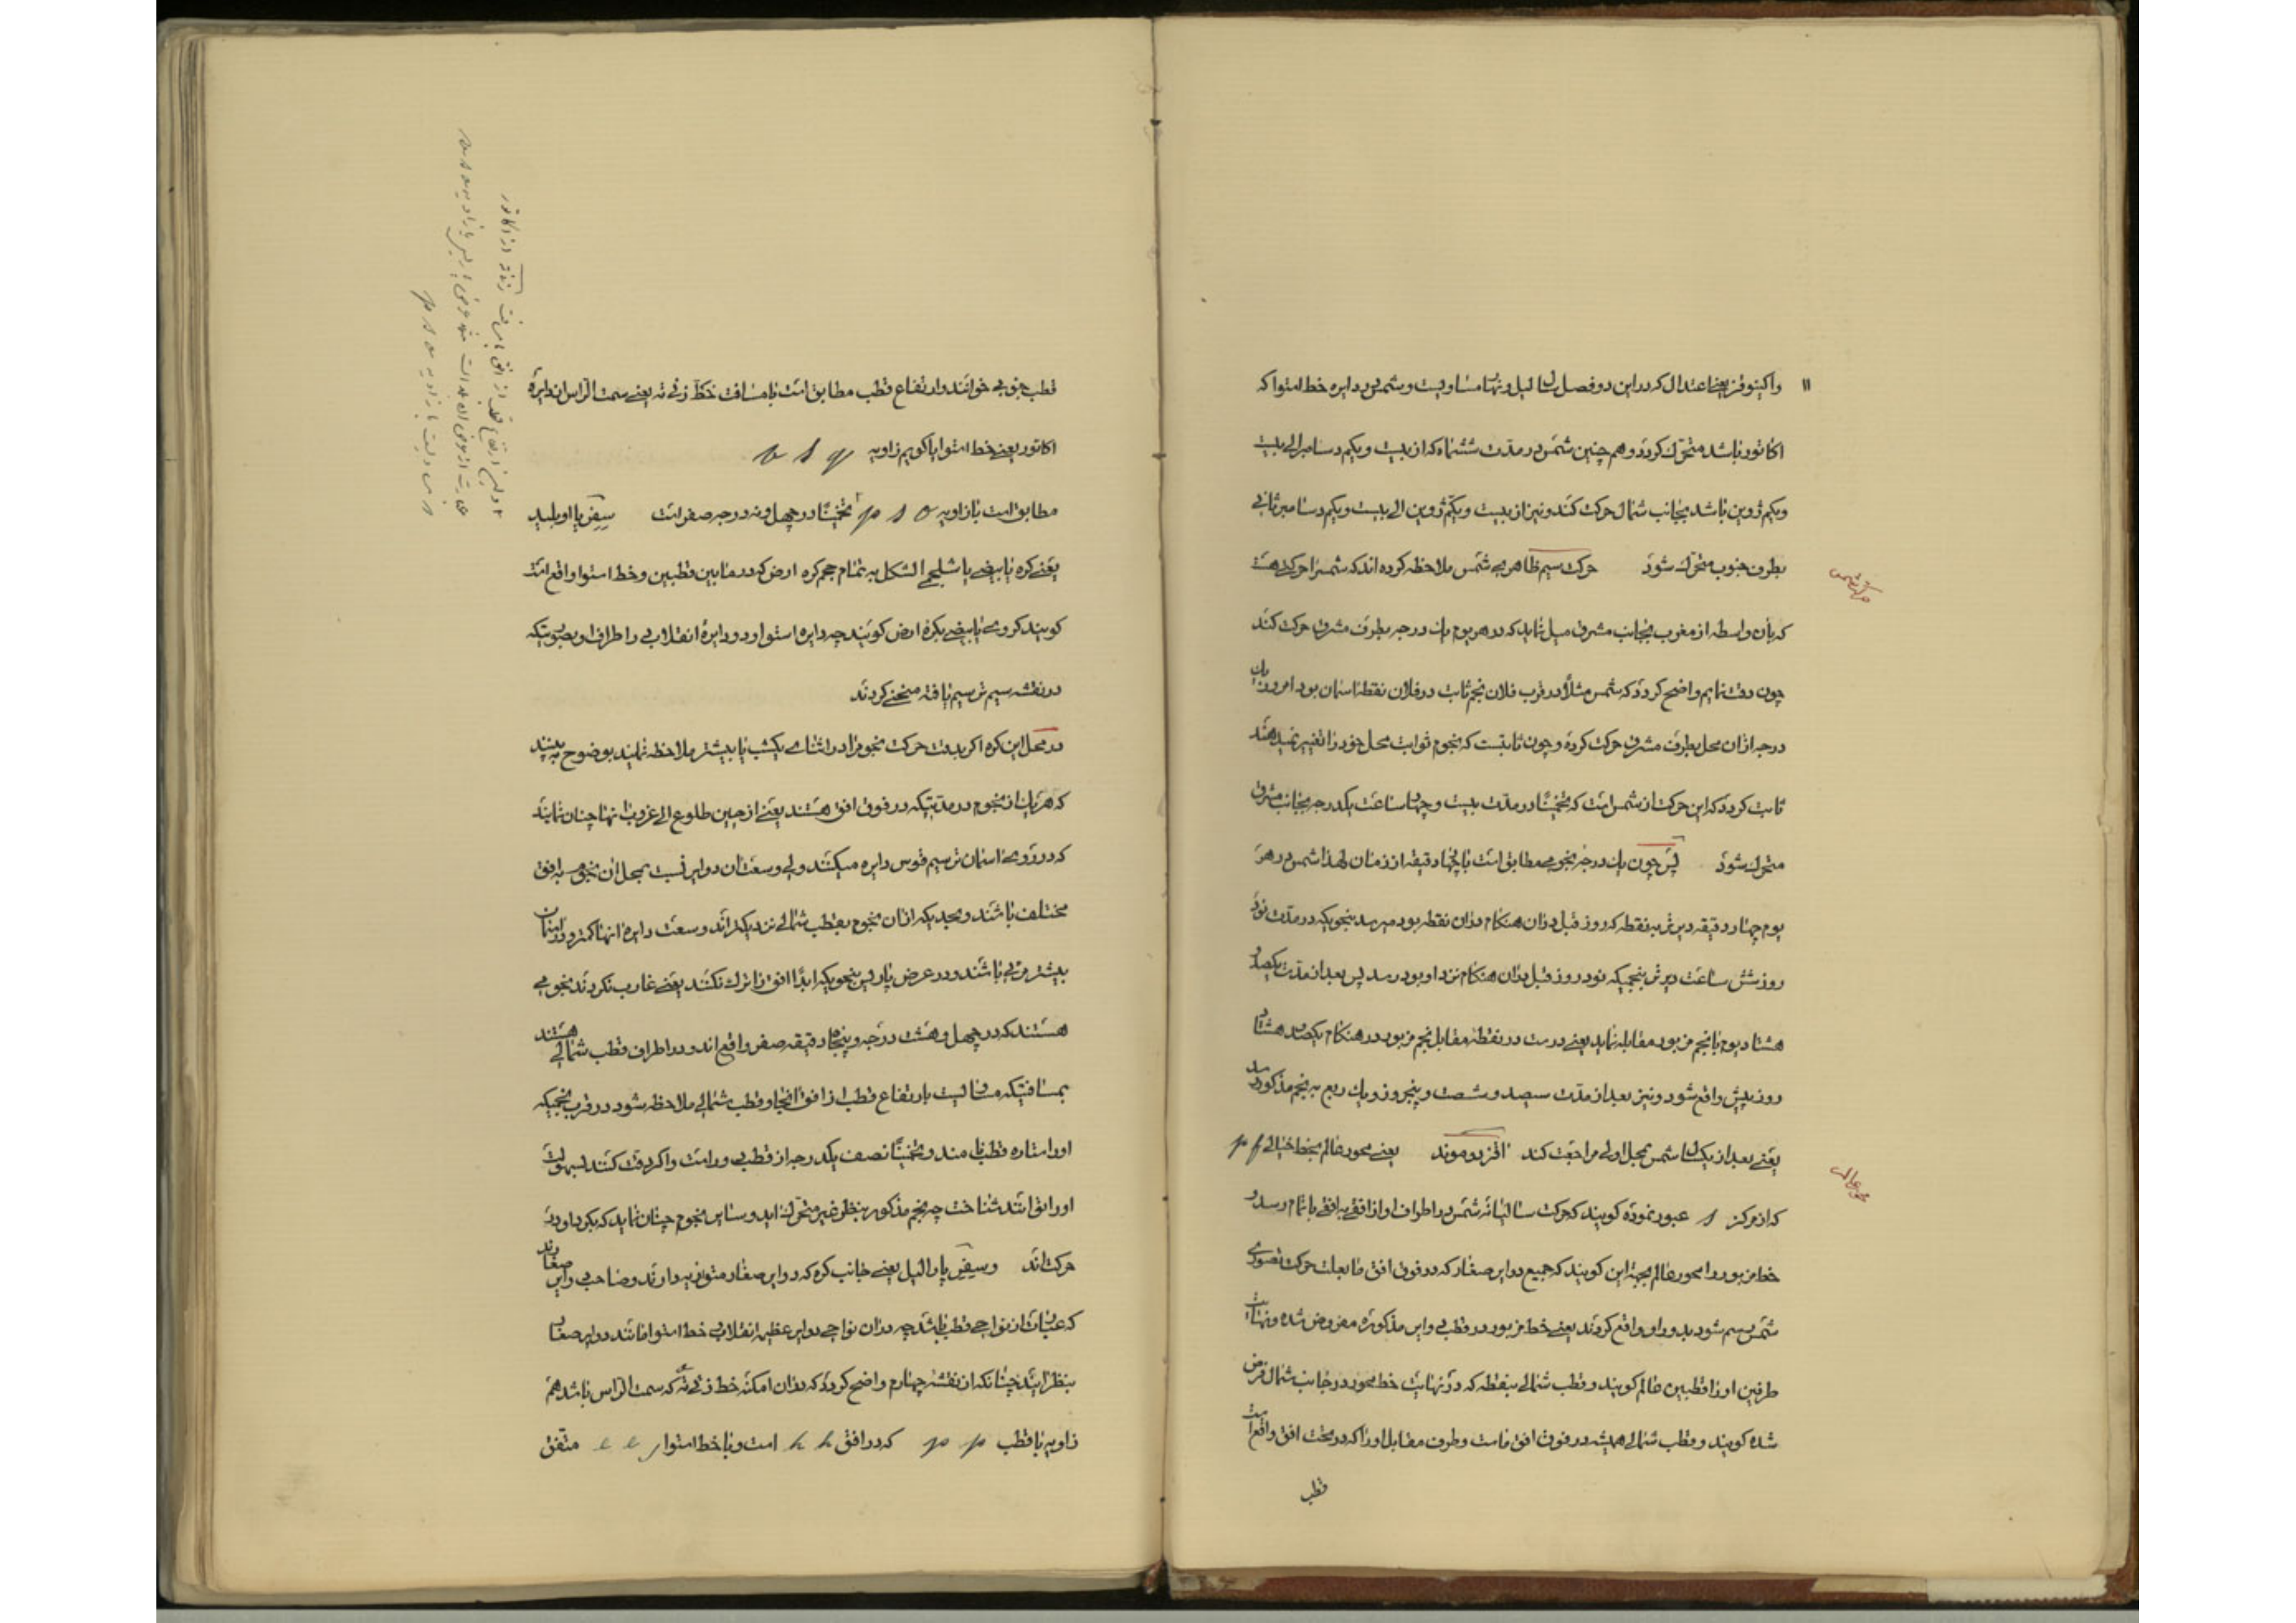 ۱۱ واکینوقز یعنے اعتدال که در این دو فصل سال لیل و نهار مساویست و شمس در دایره خط استوا که
اکاتور باشد متحرّک کردد و هم چنین شمس در مدت ششماه که از بیست و یکم دسامبر الی بیست
ویکم ژوین باشد بجانب شمال حرکت کند و نیز از بیست و یکم ژوین الی بیست و یکم دسامبر ثانی
بطرف جنوب متحرّک شود حرکت سیم ظاهریه شمس ملاحظه کرده اند که شمس را حرکتے هست
حرکت شمس
که بآن واسطه از مغرب بجانب مشرق میل نماید که در هر یوم یک درجه بطرف مشرق حرکت کند
چون دقت نمایم واضح کردد که شمس مثلاً در قرب فلان نجم ثابت در فلان نقطه اسمان بود امروز یک
درجه ازان محل بطرف مشرق حرکت کرده و چون ثابتست که نجوم ثوابت محل خود را تغییر نمیدهند
ثابت کردد که این حرکت از شمس است که تخمیناً در مدّت بیست و چهار ساعت یکدرجه بجانب مشرق
متحرک شود پس چون یک درجه نجومے مطابق است با چهار دقیقه از زمان لهذا شمس در هر
یوم چهار دقیقه دیرتر به نقطه که روز قبل دران هنکام دران نقطه بود میرسد بنحویکه در مدّت نود
روز شش ساعت دیرتر بنجمیکه نود روز قبل دران هنکام نزد او بود رسد پس بعد از مدّت یکصد و
هشتاد یوم با نجم مزبور مقابله نماید یعنے درست در نقطه مقابل نجم مزبور در هنکام یکصد و هشتاد
روز پیش واقع شود و نیز بعد از مدّت سیصد و شصت و پنج روز و یک ربع به نجم مذکور رسد
یعنے بعد از یکسال شمس بمحل اولی مراجعت کند اقز دو موند یعنے محور عالم بخط خیالے p f
محور عالم
که از مرکز s عبور نموده کویند که حرکت سالیانه شمس در اطراف او از افقے به افقے باتمام رسد و
خط مزبور را محور عالم بجهة این کویند که جمیع دوایر صغار که در فوق افق ما بعلت حرکت تصوری
شمس رسم شود بدور او واقع کردند یعنے خط مزبور در قطبے دوایر مذکوره مفروض شده و نهایت
طرفین او را قطبین عالم کویند و قطب شمالے بنقطه که در نهایت خط محور در جانب شمال فرض
شده کویند و قطب شمالے همیشه در فوق افق ماست و طرف مقابل او را که در تحت افق واقع است
قطب
قطب جنوبے خوانند و ارتفاع قطب مطابق است با مسافت خط زنےته یعنے سمت الراس از دایرهٔ
اکاتور یعنے خط استوا یا کویم زاویه
مطابق است با زاویه p s o تخمیناً در چهل و نه درجه صفر است سِفِر یا اوبلید
یعنے کره بابیضے یا شلجمے الشکل به تمام حجم کره ارض که در مابین قطبین و خط استوا واقع است
کویند کروے بابیضے بکرهٔ ارض کویند چه دایره استوا و دو دایرهٔ انقلابے در اطراف او بصورتیکه
در نقشه سیم ترسیم یافته منحنے کردند
در محل این کره اکر بدقت حرکت نجوم را در اثناے یکشب یا بیشتر ملاحظه نمایند بوضوح به بینند
که هر یک از نجوم در مدتیکه در فوق افق هستند یعنے از حین طلوع الی غروب انها چنان نمایند
که در روے اسمان ترسیم قوس دایره میکنند ولے وسعت ان دوایر نسبت بمحل ان نجوم به افق
مختلف باشند و بحدیکه ازان نجوم بقطب شمالے نزدیکتراند وسعت دایرهٔ انها کمتر و در اسمان
بیشتر مرئے باشند و در عرض پاریس نجومیکه ابداً افق را ترک نکنند یعنے غارب نکردند نجومے
هستند که در چهل و هشت درجه و پنجاه دقیقه صفر واقع اند و در اطراف قطب شمالے هستند
بمسافتیکه مساویست بارتفاع قطب از افق انجا و قطب شمالے ملاحظه شود در قرب نجمیکه
اورا ستاره قطب نامند و تخمیناً نصف یکدرجه از قطب دور است و اکر دقت کنند بسهولت
اورا توانند شناخت چه نجم مذکور بنظر غیر متحرّک اید و سایر نجوم چنان نماید که بکرد او در
حرکت اند و سِفِر پارالیل یعنے جانب کره که دوایر صغار متوازیه دارند و صاحب دوایر صغارند
که عبارت از نواحے قطب باشد چه دران نواحے دوایر عظیمه انقلابے خط استوا مانند دوایر صغار
بنظر ایند چنانکه از نقشه چهارم واضح کردد که دران امکنه خط زنےته که سمت الراس باشد هم
زاویه با قطب p p که در افق h h است و با خط استوا e e متّفق